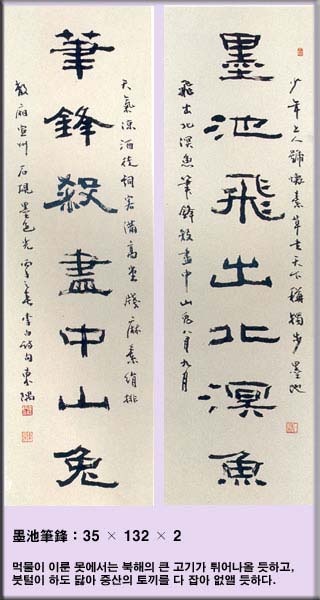 少年上人號懷素草書天下稱獨步墨池
墨池飛出北溟魚
飛出北溟魚筆鋒殺盡中山兔八月九月
天氣涼酒徒詞客滿高堂牋麻素絹排
筆鋒殺盡中山兔
數廂宣州石硯墨色光 李白詩句 東隅
墨池筆鋒 : 35 × 132 × 2
먹물이 이룬 못에서는 북해의 큰 고기가 튀어나올 듯하고,
붓털이 하도 닳아 중산의 토끼를 다 잡아 없앨 듯하다.